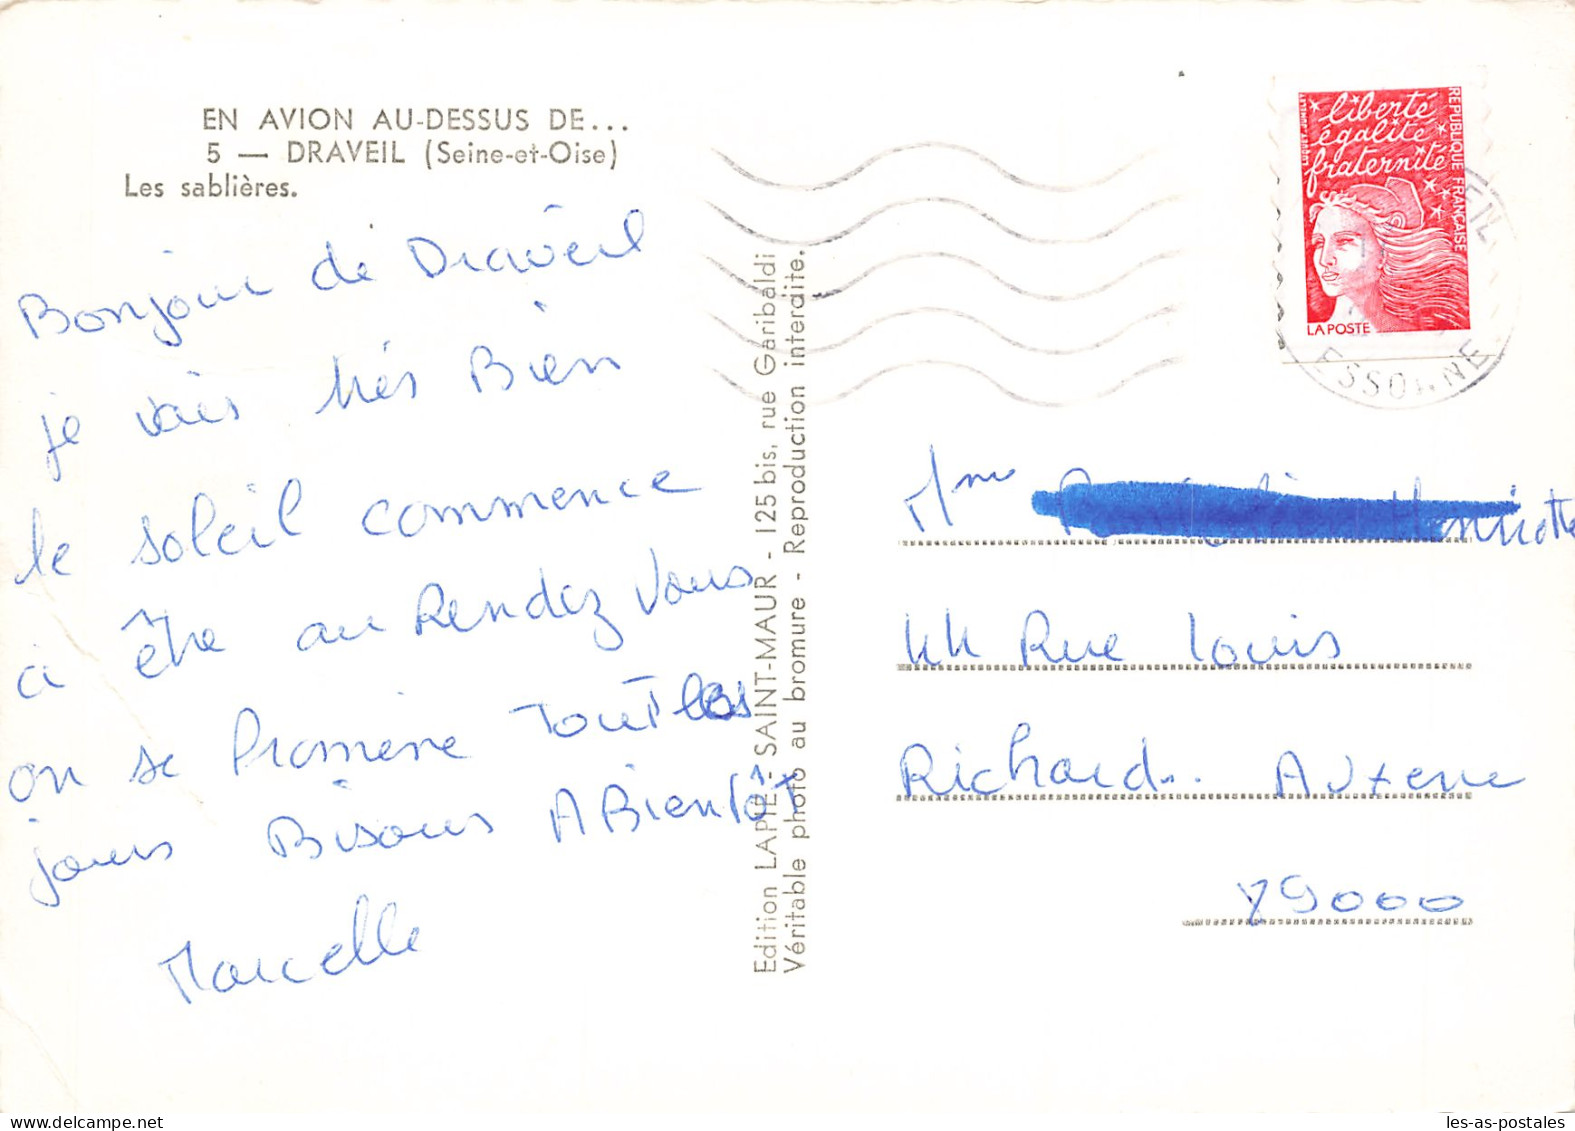 EN AVION AU-DESSUS DE...
5 — DRAVEIL (Seine-et-Oise)
Les sablières.
Bonjour de Draveil
je vais très Bien
le soleil commence
à être au Rendez Vous
on se Promène Tout les
jours Bisous A Bientôt
Marcelle
Edition LAPIE - SAINT-MAUR - 125 bis, rue Garibaldi
Véritable photo au bromure - Reproduction interdite.
liberté
égalité
fraternité
REPUBLIQUE FRANÇAISE
LA POSTE
ESSONNE
Mme Henriette
44 Rue Louis
Richard. Auxerre
89000
les-as-postales
www.delcampe.net